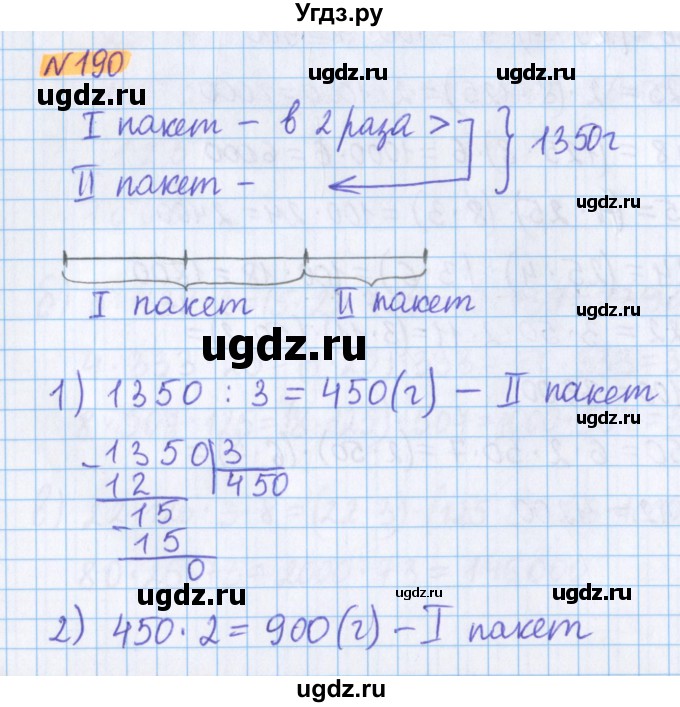 Угдз.ру
N 190
ugdz.ru
ugdz.ru
I пакет – в 2 раза > } 1350г
II пакет –
ugdz.ru
I пакет II пакет
ugdz.ru
ugdz.ru
1) 1350 : 3 = 450(г) – II пакет
ugdz.ru
- 1350 | 3
12 450
- 15
15
0
ugdz.ru
ugdz.ru
ugdz.ru
2) 450 · 2 = 900(г) – I пакет
ugdz.ru